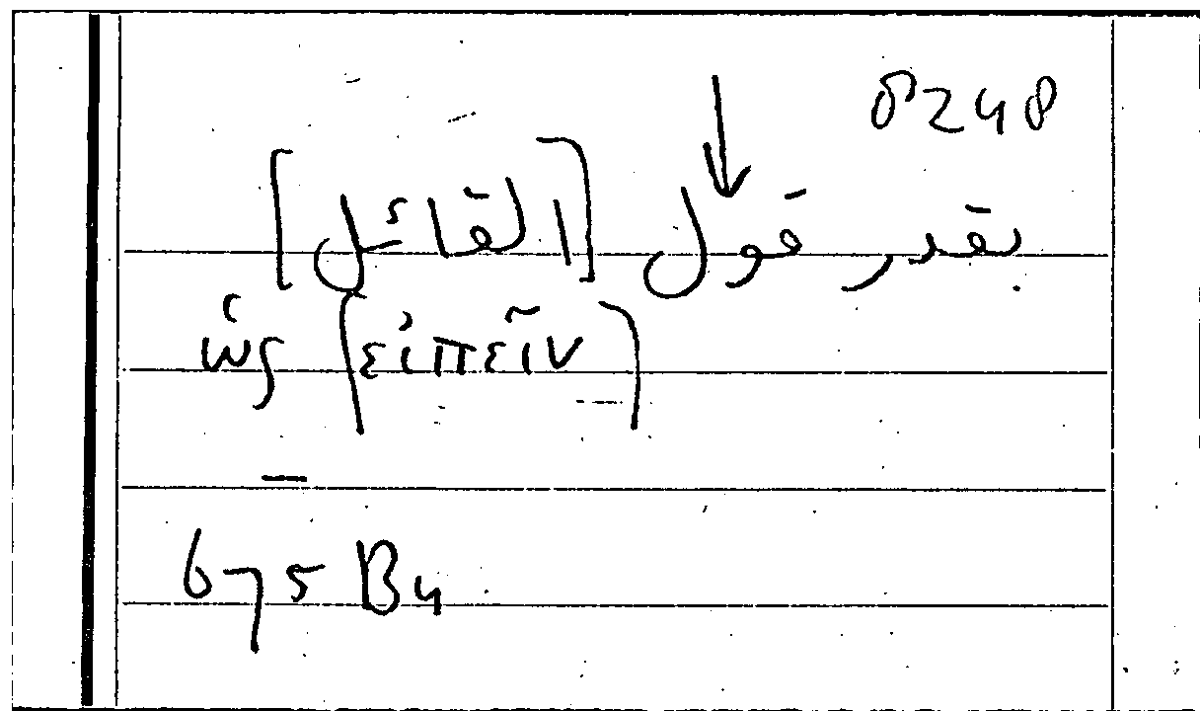 8248
بقدر قول [القائل]
ὡς (εἰπεῖν)
—
675 B4